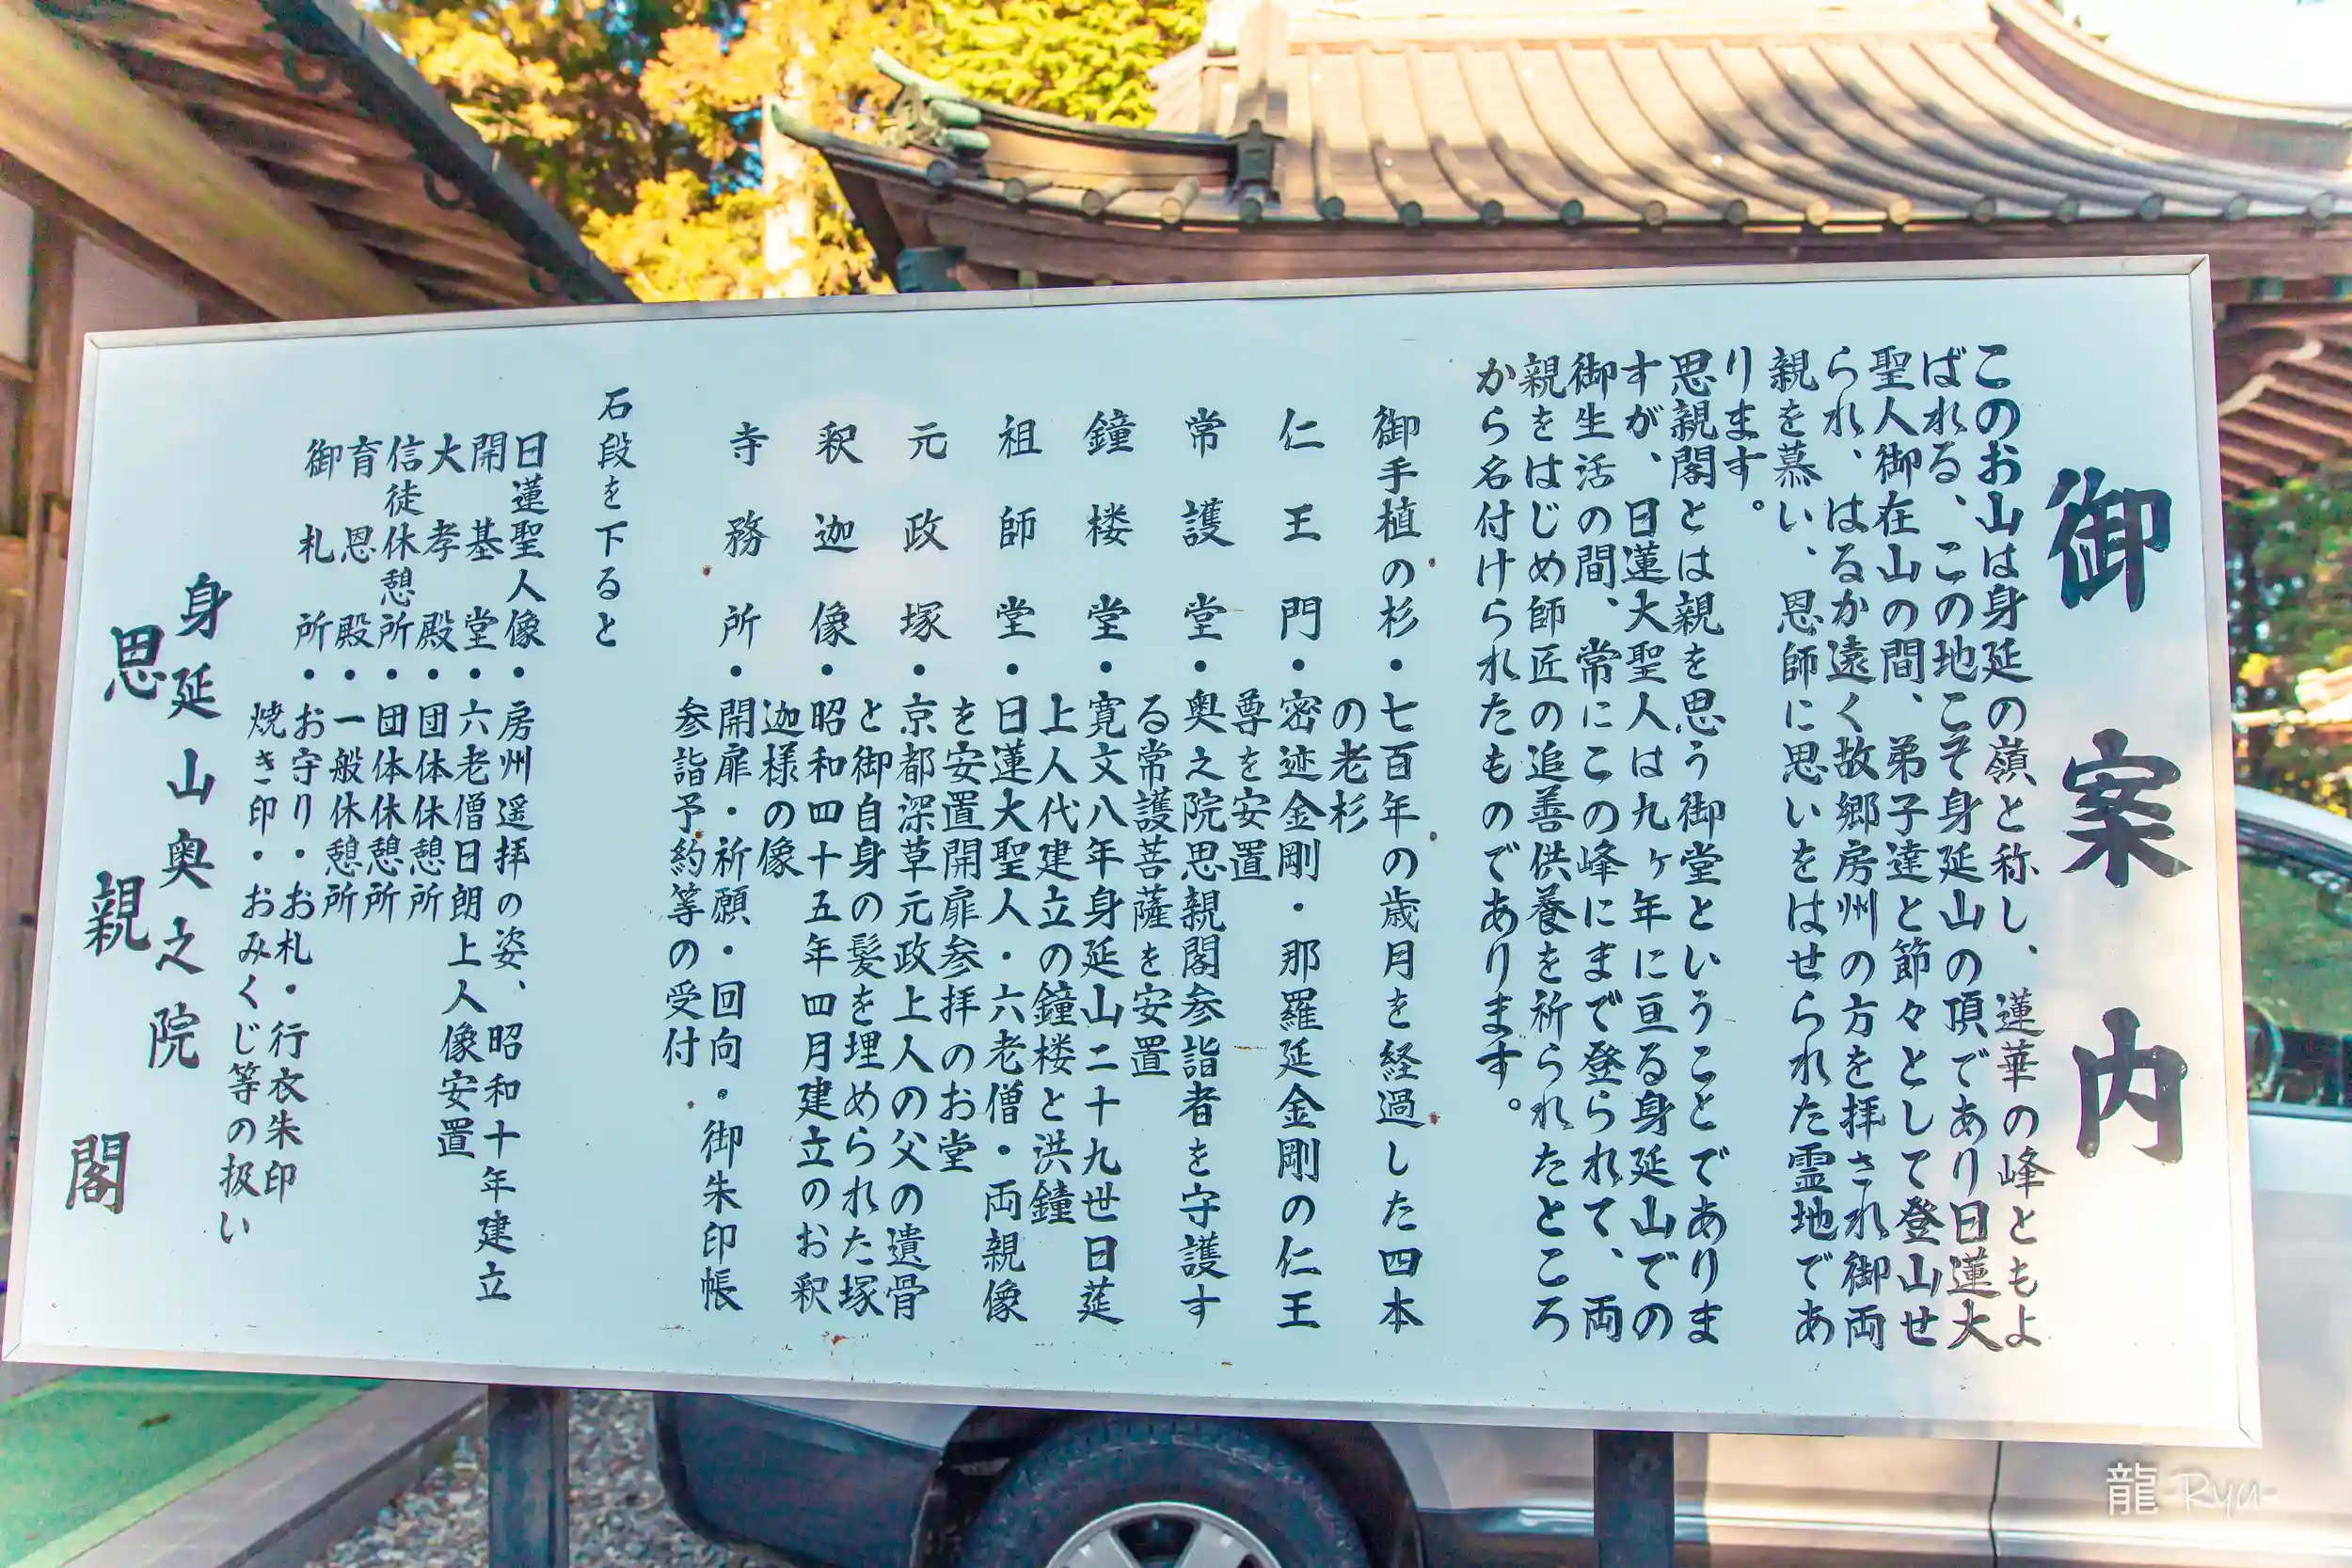 御案内
このお山は身延の嶺と称し、蓮華の峰ともよ
ばれる、この地こそ身延山の頂であり日蓮大
聖人御在山の間、弟子達と節々として登山せ
られ、はるか遠く故郷房州の方を拝され御両
親を慕い、恩師に思いをはせられた霊地であ
ります。
思親閣とは親を思う御堂ということでありま
すが、日蓮大聖人は九ヶ年に亘る身延山での
御生活の間、常にこの峰にまで登られて、両
親をはじめ師匠の追善供養を祈られたところ
から名付けられたものであります。
御手植の杉・七百年の歳月を経過した四本
の老杉
仁王門・密迹金剛・那羅延金剛の仁王
尊を安置
常護堂・奥之院思親閣参詣者を守護す
る常護菩薩を安置
鐘楼堂・寛文八年身延山二十九世日莚
上人代建立の鐘楼と洪鐘
祖師堂・日蓮大聖人・六老僧・両親像
を安置開扉参拝のお堂
元政塚・京都深草元政上人の父の遺骨
と御自身の髪を埋められた塚
釈迦像・昭和四十五年四月建立のお釈
迦様の像
寺務所・開扉・祈願・回向・御朱印帳
参詣予約等の受付
石段を下ると
日蓮聖人像・房州遥拝の姿、昭和十年建立
開基堂・六老僧日朗上人像安置
大孝殿・団体休憩所
信徒休憩所・団体休憩所
育恩殿・一般休憩所
御札所・お守り・お札・行衣朱印
焼き印・おみくじ等の扱い
身延山奥之院
思親閣
龍-Ryu-